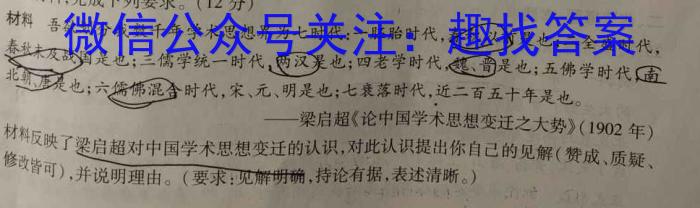 完成下列要求。(12分)
微信公众号关注：趣找答案
材料 吾 数千年学术思想界为七时代：一胚胎时代，
春秋未及战国是也；三儒学统一时代，两汉是也；四老学时代，魏、晋是也；五佛学时代，南
北朝、唐是也；六儒佛混合时代，宋、元、明是也；七衰落时代，近二百五十年是也。
——梁启超《论中国学术思想变迁之大势》(1902年)
材料反映了梁启超对中国学术思想变迁的认识，对此认识提出你自己的见解(赞成、质疑、
修改皆可)，并说明理由。(要求：见解明确，持论有据，表述清晰。)